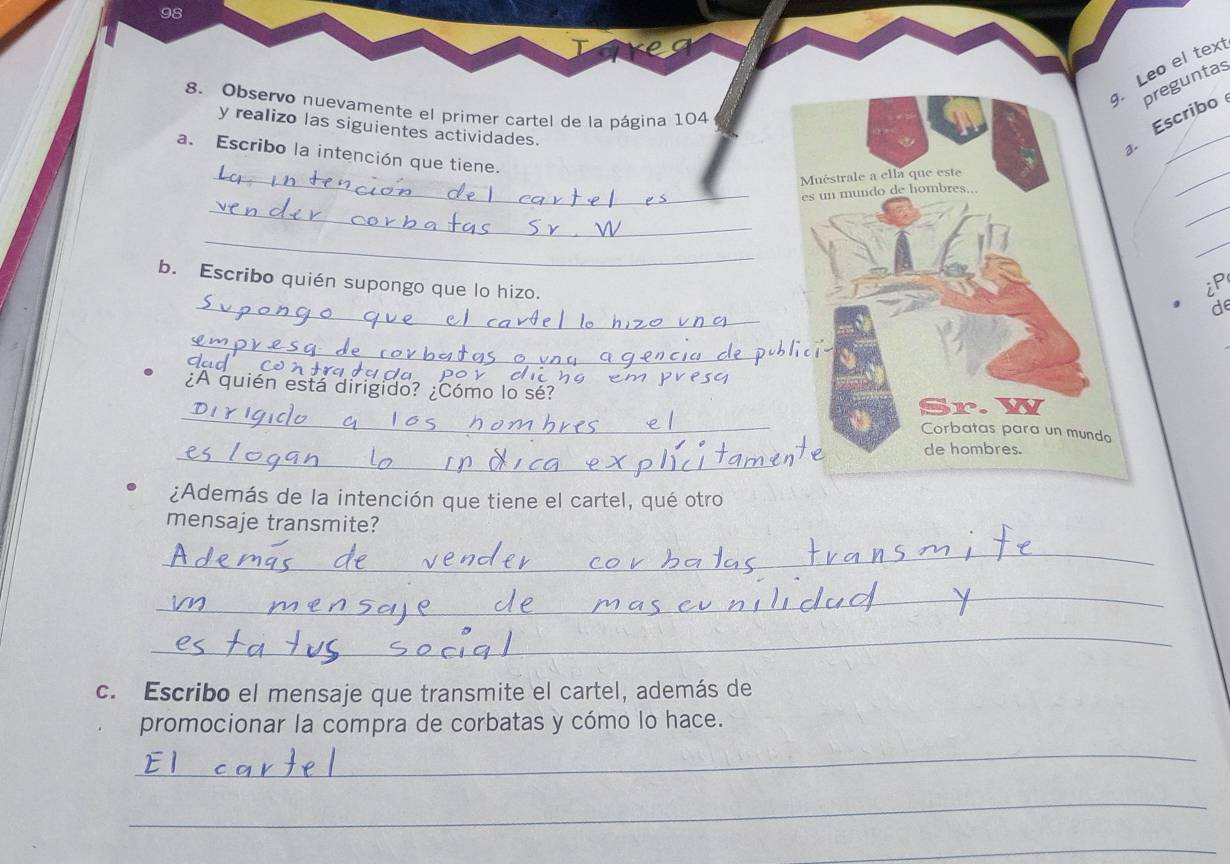 98
Tarea
8. Observo nuevamente el primer cartel de la página 104
y realizo las siguientes actividades.
a. Escribo la intención que tiene.
La intención del cartel es
vender corbatas Sr. W
b. Escribo quién supongo que lo hizo.
Supongo que el cartel lo hizo una
empresa de corbatas o una agencia de publici-
dad contratada por dicha empresa
• ¿A quién está dirigido? ¿Cómo lo sé?
Dirigido a los hombres el
eslogan lo indica explícitamente
• ¿Además de la intención que tiene el cartel, qué otro
mensaje transmite?
Además de vender corbatas transmite
un mensaje de mascunilidad y
estatus social
c. Escribo el mensaje que transmite el cartel, además de
promocionar la compra de corbatas y cómo lo hace.
El cartel
Muéstrale a ella que este
es un mundo de hombres...
Sr. W
Corbatas para un mundo
de hombres.
9. Leo el text
preguntas
a. Escribo
• ¿P
de